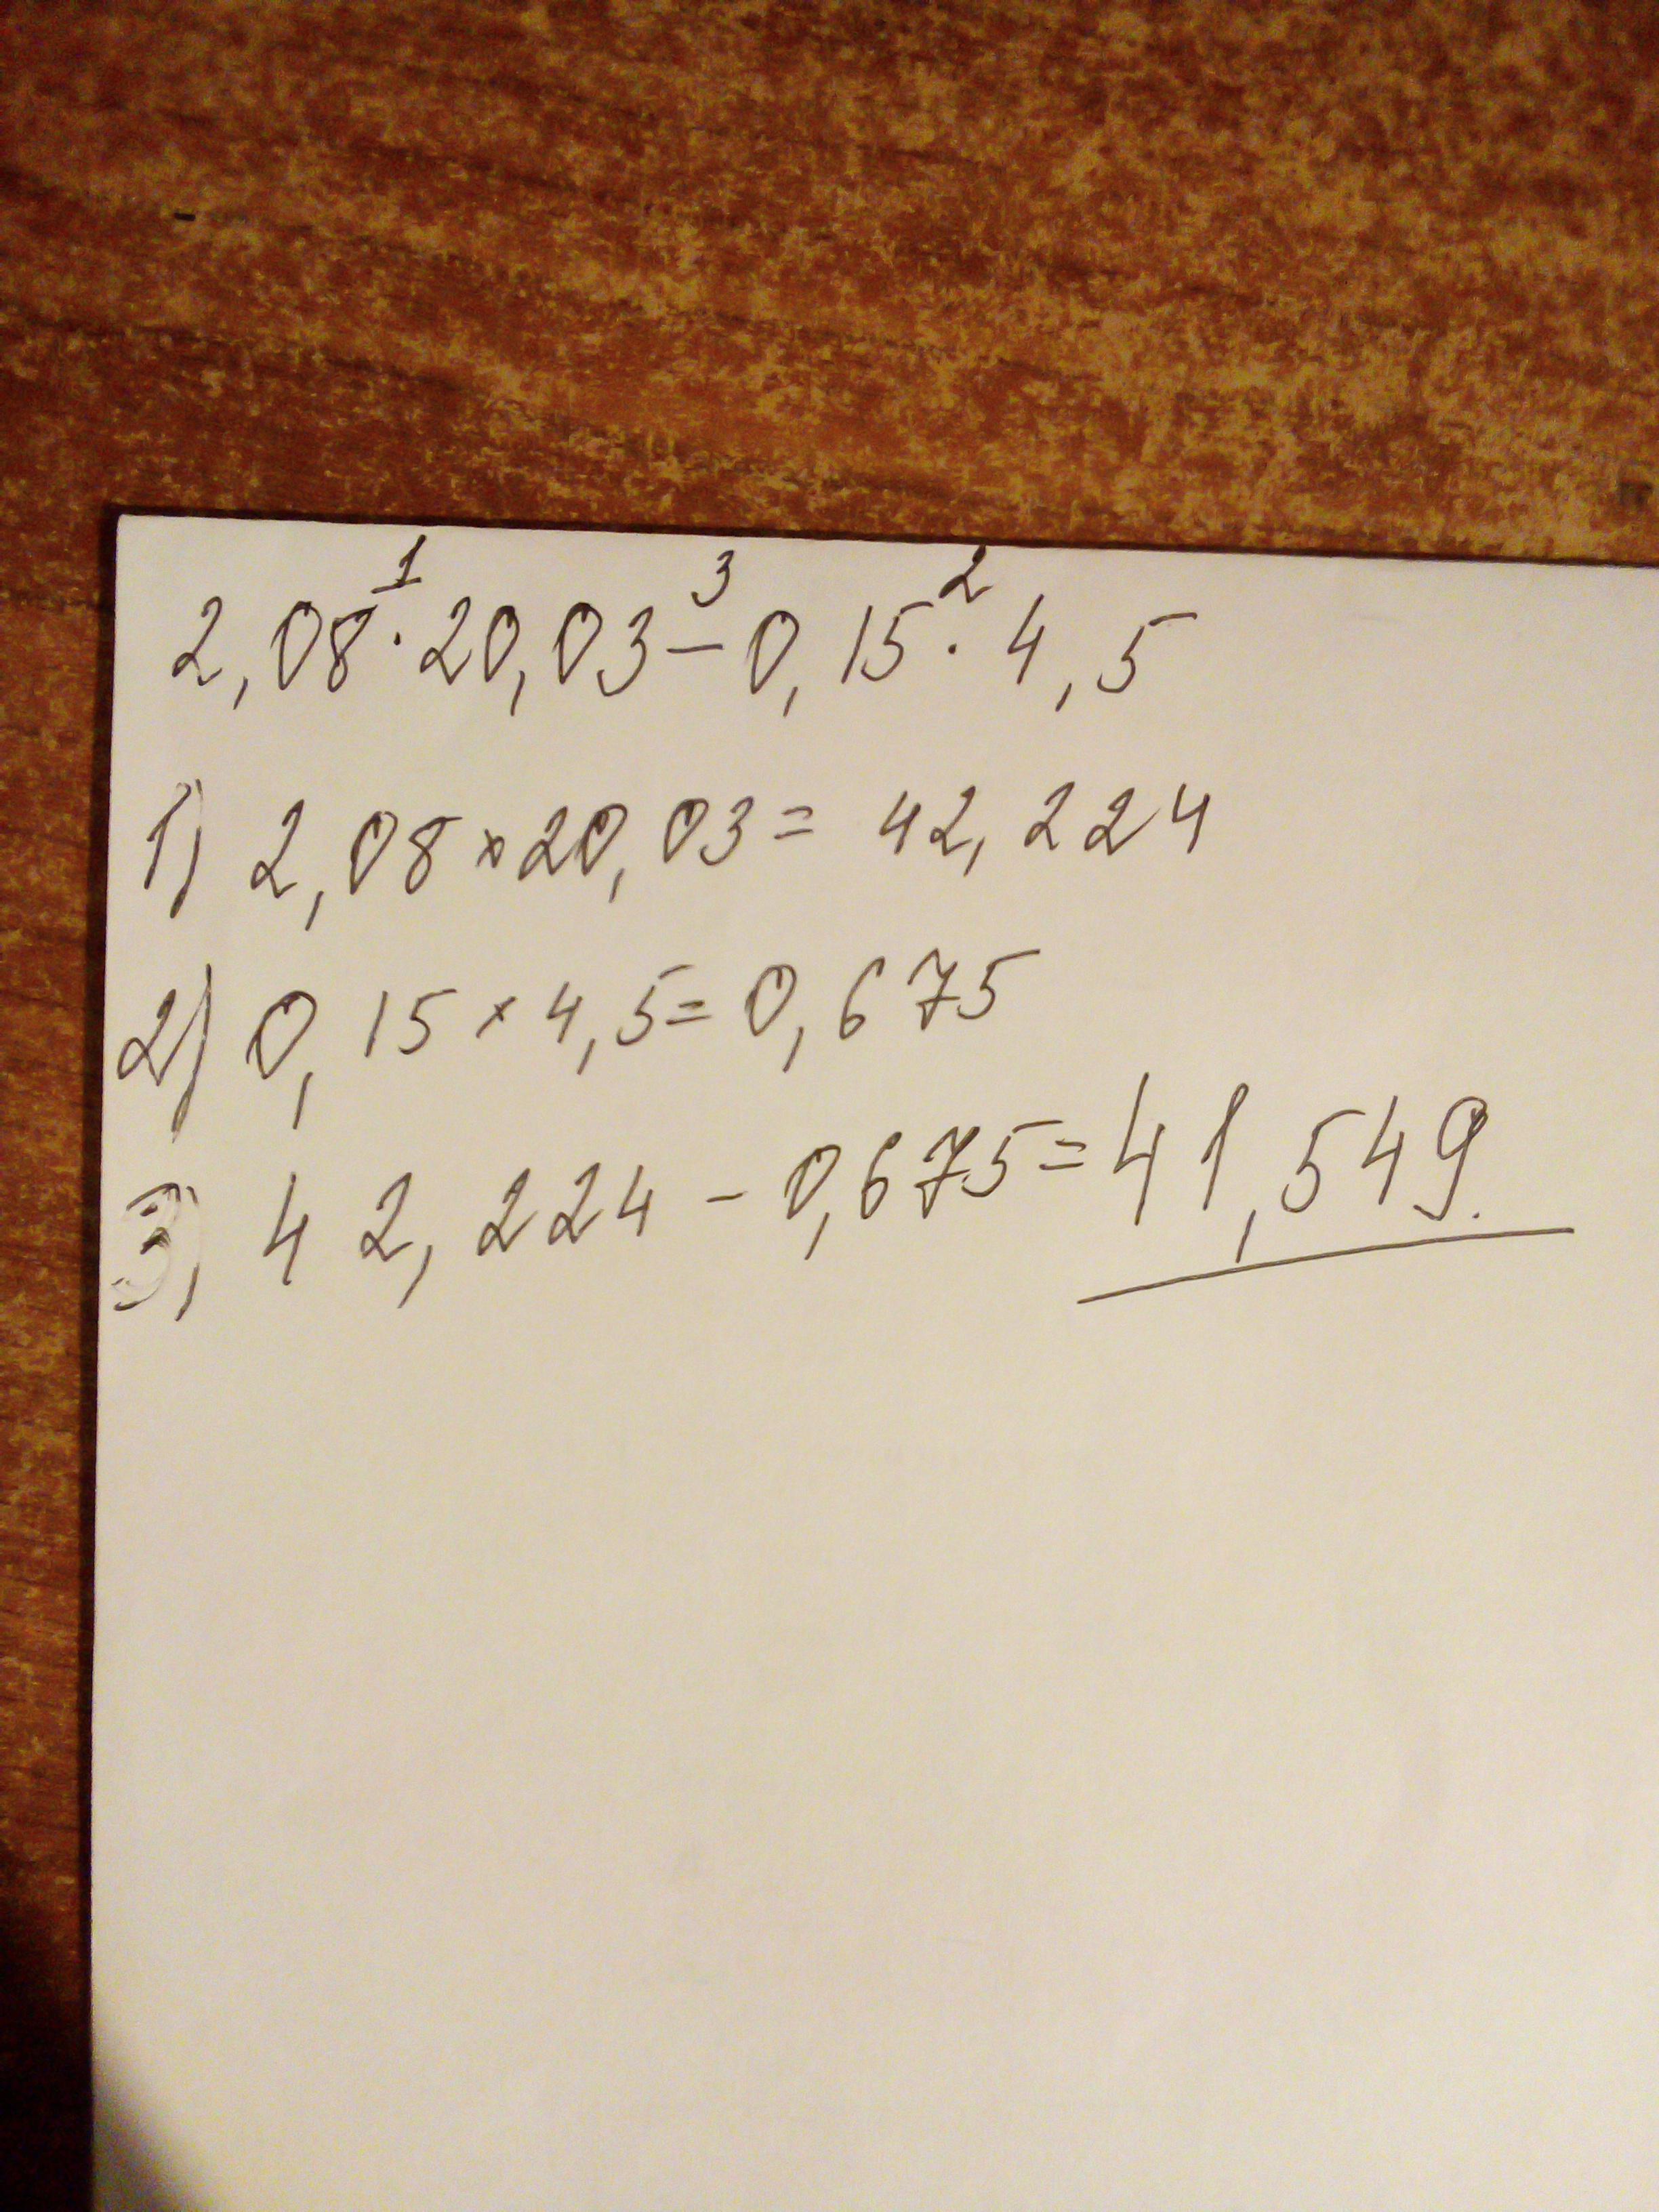 1 3 2
2,08 · 20,03 - 0,15 · 4,5
1) 2,08 × 20,03 = 42,224
2) 0,15 × 4,5 = 0,675
3) 42,224 - 0,675 = 41,549.